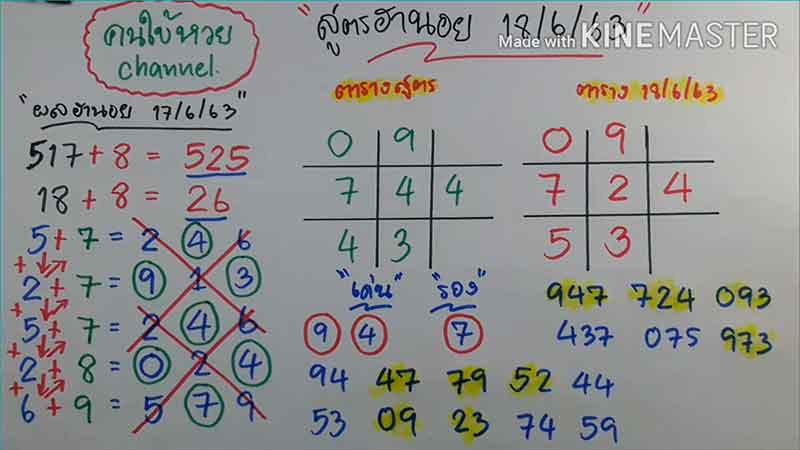 คนใบ้หวย
channel.
"สูตรฮานอย 18/6/63"
Made with KINEMASTER
"ผลฮานอย 17/6/63"
517 + 8 = 525
18 + 8 = 26
5 + 7 = 2 4 6
+
2 + 7 = 9 1 3
+
5 + 7 = 2 4 6
+
2 + 8 = 0 2 4
+
6 + 9 = 5 7 9
ตารางสูตร
0 9
7 4 4
4 3
ตาราง 18/6/63
0 9
7 2 4
5 3
"เด่น" "รอง"
9 4 7
94 47 79 52 44
53 09 23 74 59
947 724 093
437 075 973